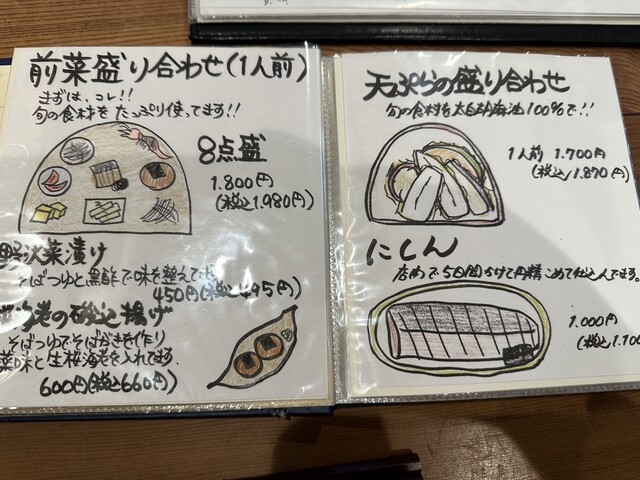 前菜盛り合わせ(1人前)
まずは、コレ!!
旬の食材をたっぷり使ってます!!
8点盛
1.800円
(税込1.980円)
野沢菜漬け
そばつゆと黒酢で味を整えて
450円(税込495円)
海老の磯辺揚げ
そばつゆでそばがきを作り
薬味と生桜海老を入れてます.
600円(税込660円)
天ぷらの盛り合わせ
旬の食材を太白胡麻油100%で!!
1人前 1.700円
(税込1.870円)
にしん
店内で5日間かけて丹精こめて仕込んでます。
1.000円
(税込1.100